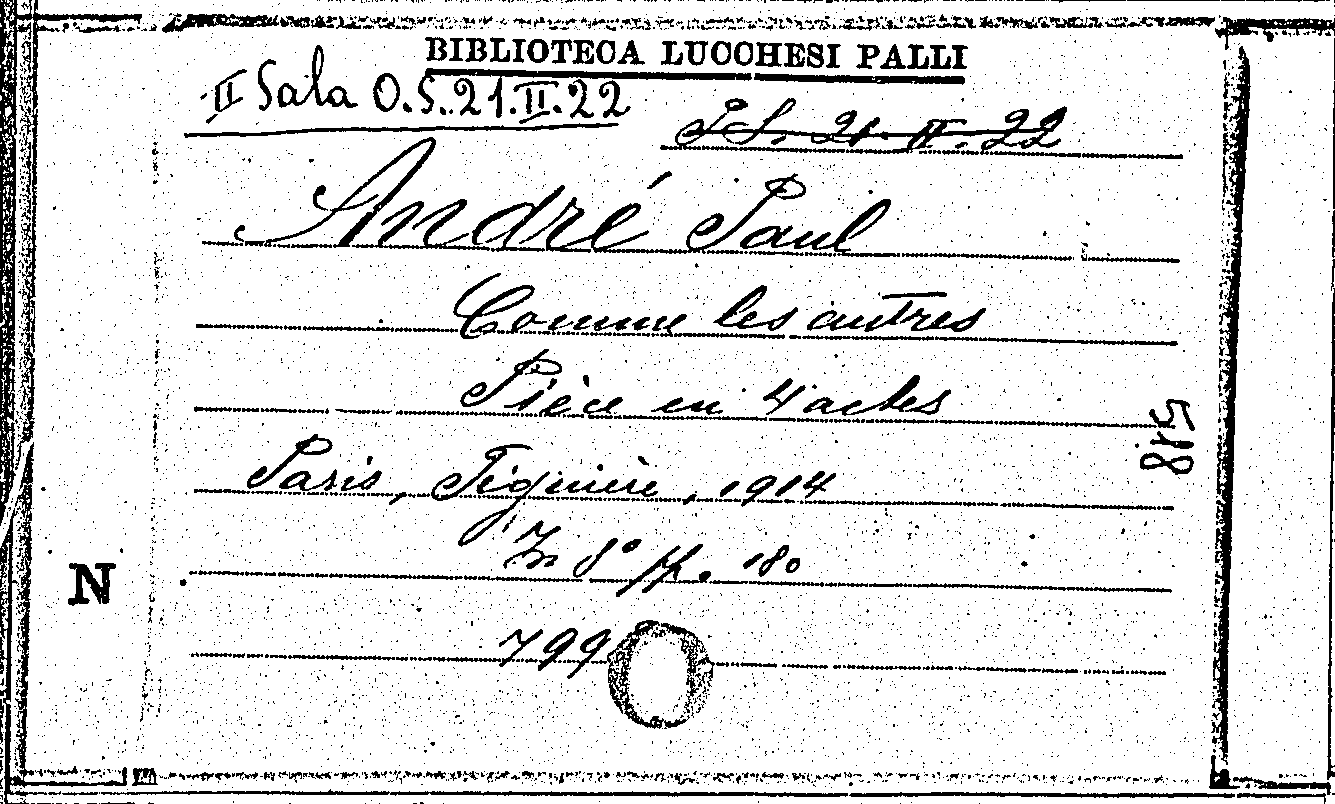 BIBLIOTECA LUCCHESI PALLI
II Sala O.S.21.II.22
S S. 21. II. 22
André Paul
Comme les autres
Pièce en 4 actes
Paris, Figuière, 1914
In 8° pp. 180
799
885
N